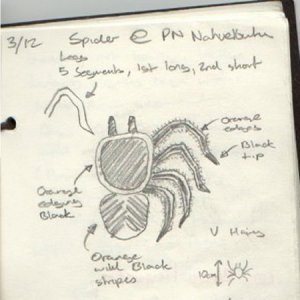 3/12 Spider @ PN Nahuelbuta
Legs
5 Segments, 1st long, 2nd short
Orange
edges
Black
tip
Orange
edging
Black
V Hairy
Orange
with Black
stripes
10cm